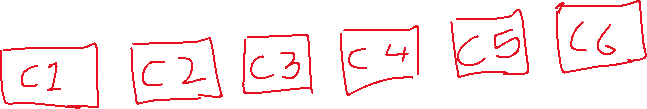 C1 C2 C3 C4 C5 C6